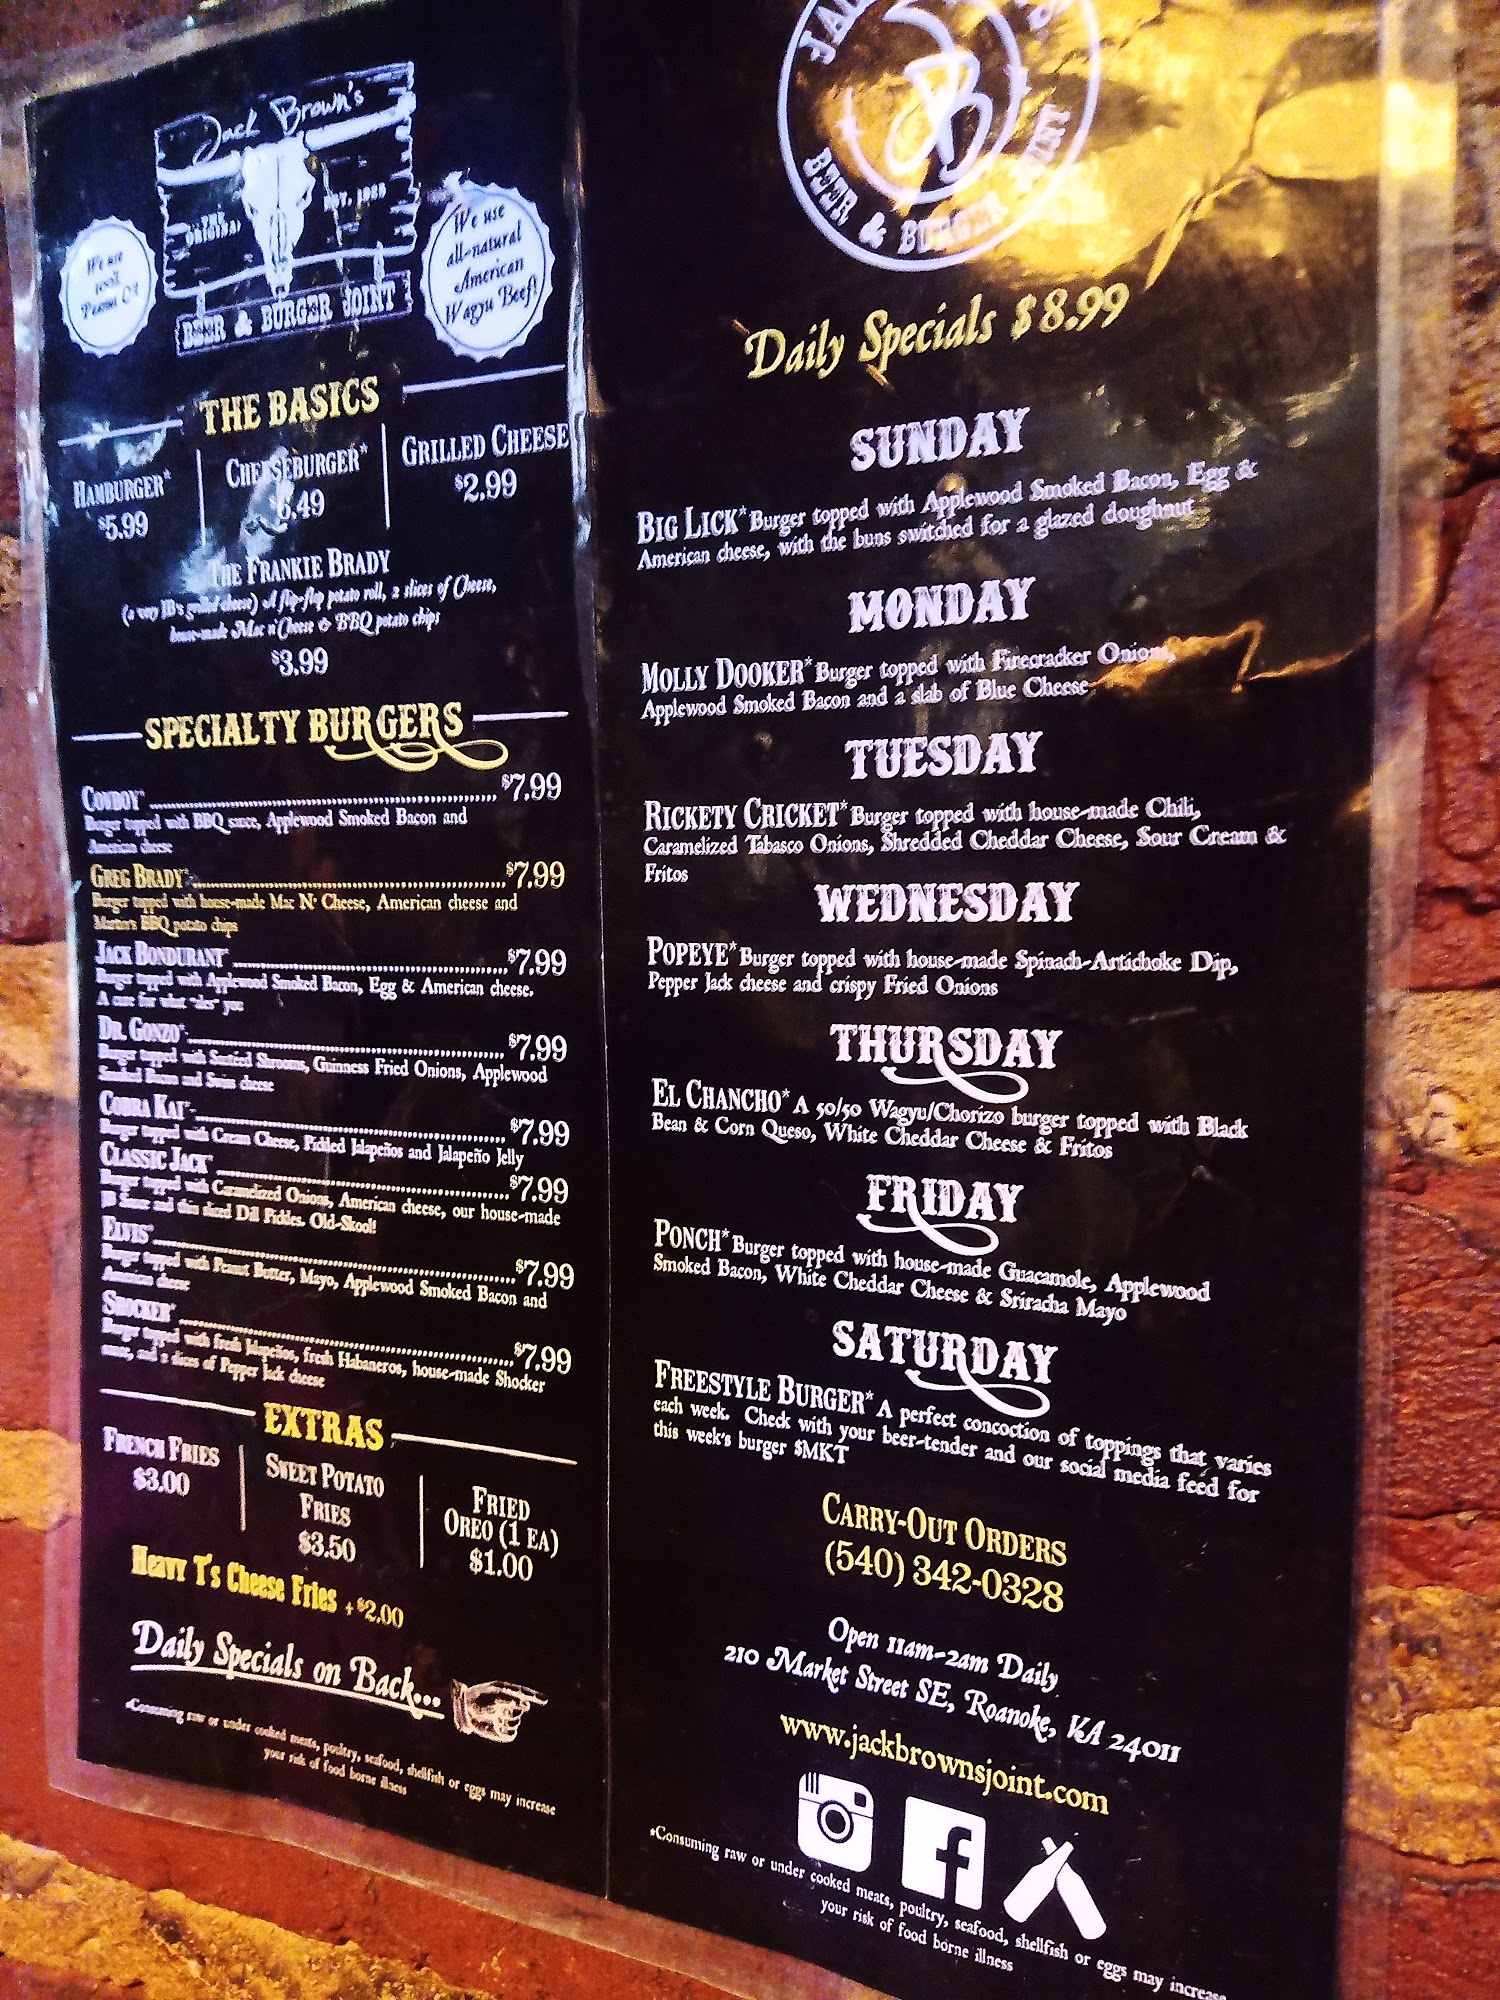 Jack Brown's
THE ORIGINAL
EST. 1989
BEER & BURGER JOINT
We use
100%
Peanut Oil
We use
all-natural
American
Wagyu Beef!
THE BASICS
HAMBURGER*
$5.99
CHEESEBURGER*
6.49
GRILLED CHEESE
$2.99
THE FRANKIE BRADY
(a very JB's grilled cheese) A flip-flop potato roll, 2 slices of Cheese,
house-made Mac n' Cheese & BBQ potato chips
$3.99
SPECIALTY BURGERS
COWBOY* $7.99
Burger topped with BBQ sauce, Applewood Smoked Bacon and
American cheese
GREG BRADY* $7.99
Burger topped with house-made Mac N' Cheese, American cheese and
Martin's BBQ potato chips
JACK BONDURANT* $7.99
Burger topped with Applewood Smoked Bacon, Egg & American cheese.
A cure for what "ales" you
DR. GONZO* $7.99
Burger topped with Sautéed Shrooms, Guinness Fried Onions, Applewood
Smoked Bacon and Swiss cheese
COBRA KAI* $7.99
Burger topped with Cream Cheese, Pickled Jalapeños and Jalapeño Jelly
CLASSIC JACK* $7.99
Burger topped with Caramelized Onions, American cheese, our house-made
JB Sauce and thin sliced Dill Pickles. Old-Skool!
ELVIS* $7.99
Burger topped with Peanut Butter, Mayo, Applewood Smoked Bacon and
American cheese
SHOCKER* $7.99
Burger topped with fresh Jalapeños, fresh Habaneros, house-made Shocker
sauce, and 2 slices of Pepper Jack cheese
EXTRAS
FRENCH FRIES
$3.00
SWEET POTATO
FRIES
$3.50
FRIED
OREO (1 EA)
$1.00
Heavy T's Cheese Fries + $2.00
Daily Specials on Back...
*Consuming raw or under cooked meats, poultry, seafood, shellfish or eggs may increase
your risk of food borne illness
BEER & BURGER JOINT
Daily Specials $8.99
SUNDAY
BIG LICK* Burger topped with Applewood Smoked Bacon, Egg &
American cheese, with the buns switched for a glazed doughnut
MONDAY
MOLLY DOOKER* Burger topped with Firecracker Onions,
Applewood Smoked Bacon and a slab of Blue Cheese
TUESDAY
RICKETY CRICKET* Burger topped with house-made Chili,
Caramelized Tabasco Onions, Shredded Cheddar Cheese, Sour Cream &
Fritos
WEDNESDAY
POPEYE* Burger topped with house-made Spinach-Artichoke Dip,
Pepper Jack cheese and crispy Fried Onions
THURSDAY
EL CHANCHO* A 50/50 Wagyu/Chorizo burger topped with Black
Bean & Corn Queso, White Cheddar Cheese & Fritos
FRIDAY
PONCH* Burger topped with house-made Guacamole, Applewood
Smoked Bacon, White Cheddar Cheese & Sriracha Mayo
SATURDAY
FREESTYLE BURGER* A perfect concoction of toppings that varies
each week. Check with your beer-tender and our social media feed for
this week's burger $MKT
CARRY-OUT ORDERS
(540) 342-0328
Open 11am-2am Daily
210 Market Street SE, Roanoke, VA 24011
www.jackbrownsjoint.com
*Consuming raw or under cooked meats, poultry, seafood, shellfish or eggs may increase
your risk of food borne illness